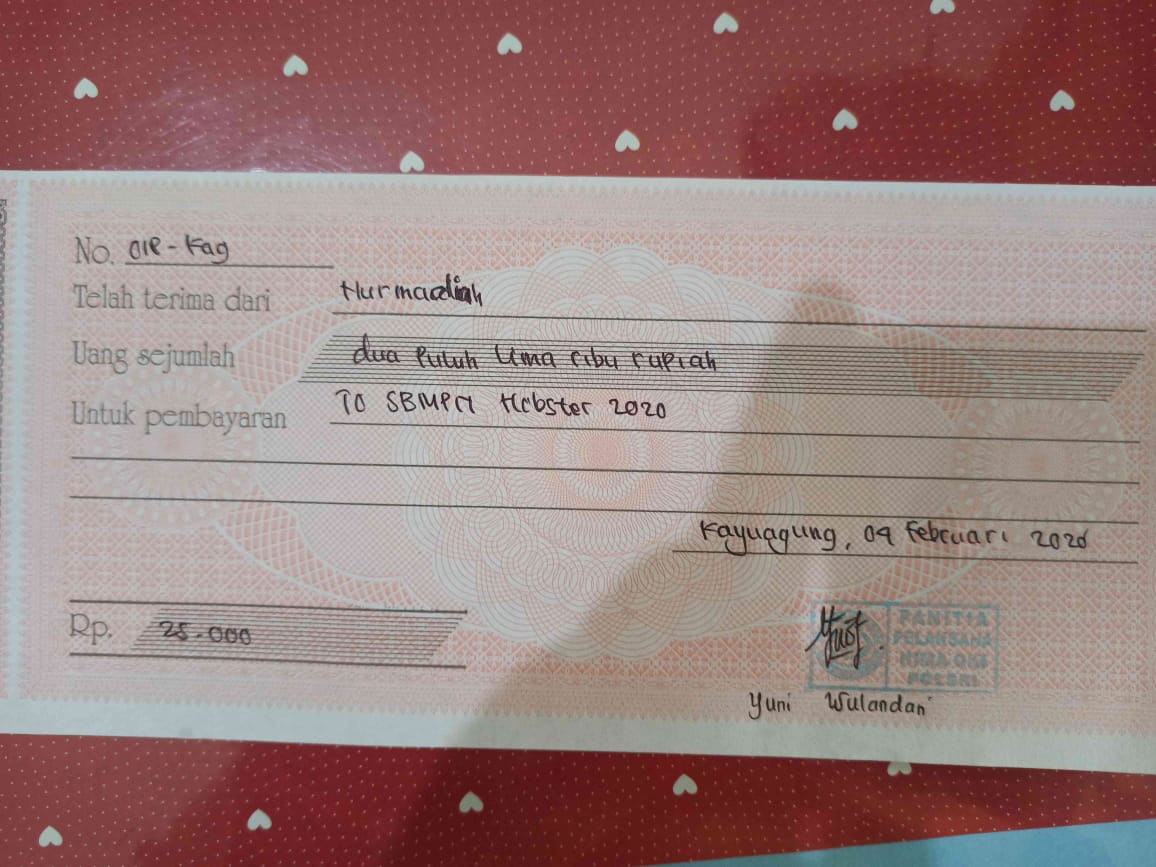 No. 01P-Kag
Telah terima dari Nurmadiah
Uang sejumlah dua Puluh Lima ribu rupiah
Untuk pembayaran TO SBMPN Hebster 2020
Kayuagung, 09 Februari 2020
Rp. 25.000
PANITIA
PELAKSANA
HIMA OKI
POLSRI
Yuni Wulandari